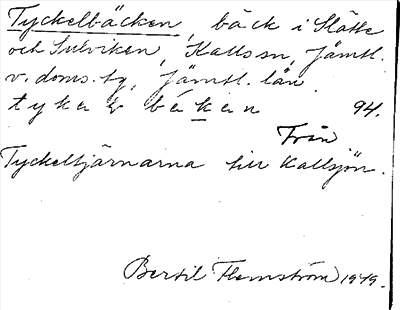 Tyckelbäcken, bäck i Slätte
och Sulviken, Kalls sn, Jämtl.
v. doms. tg, Jämtl. län.
békan 94.
Från
Tyckeltjärnarna till Kallsjön.
Bertil Flemström 1949.